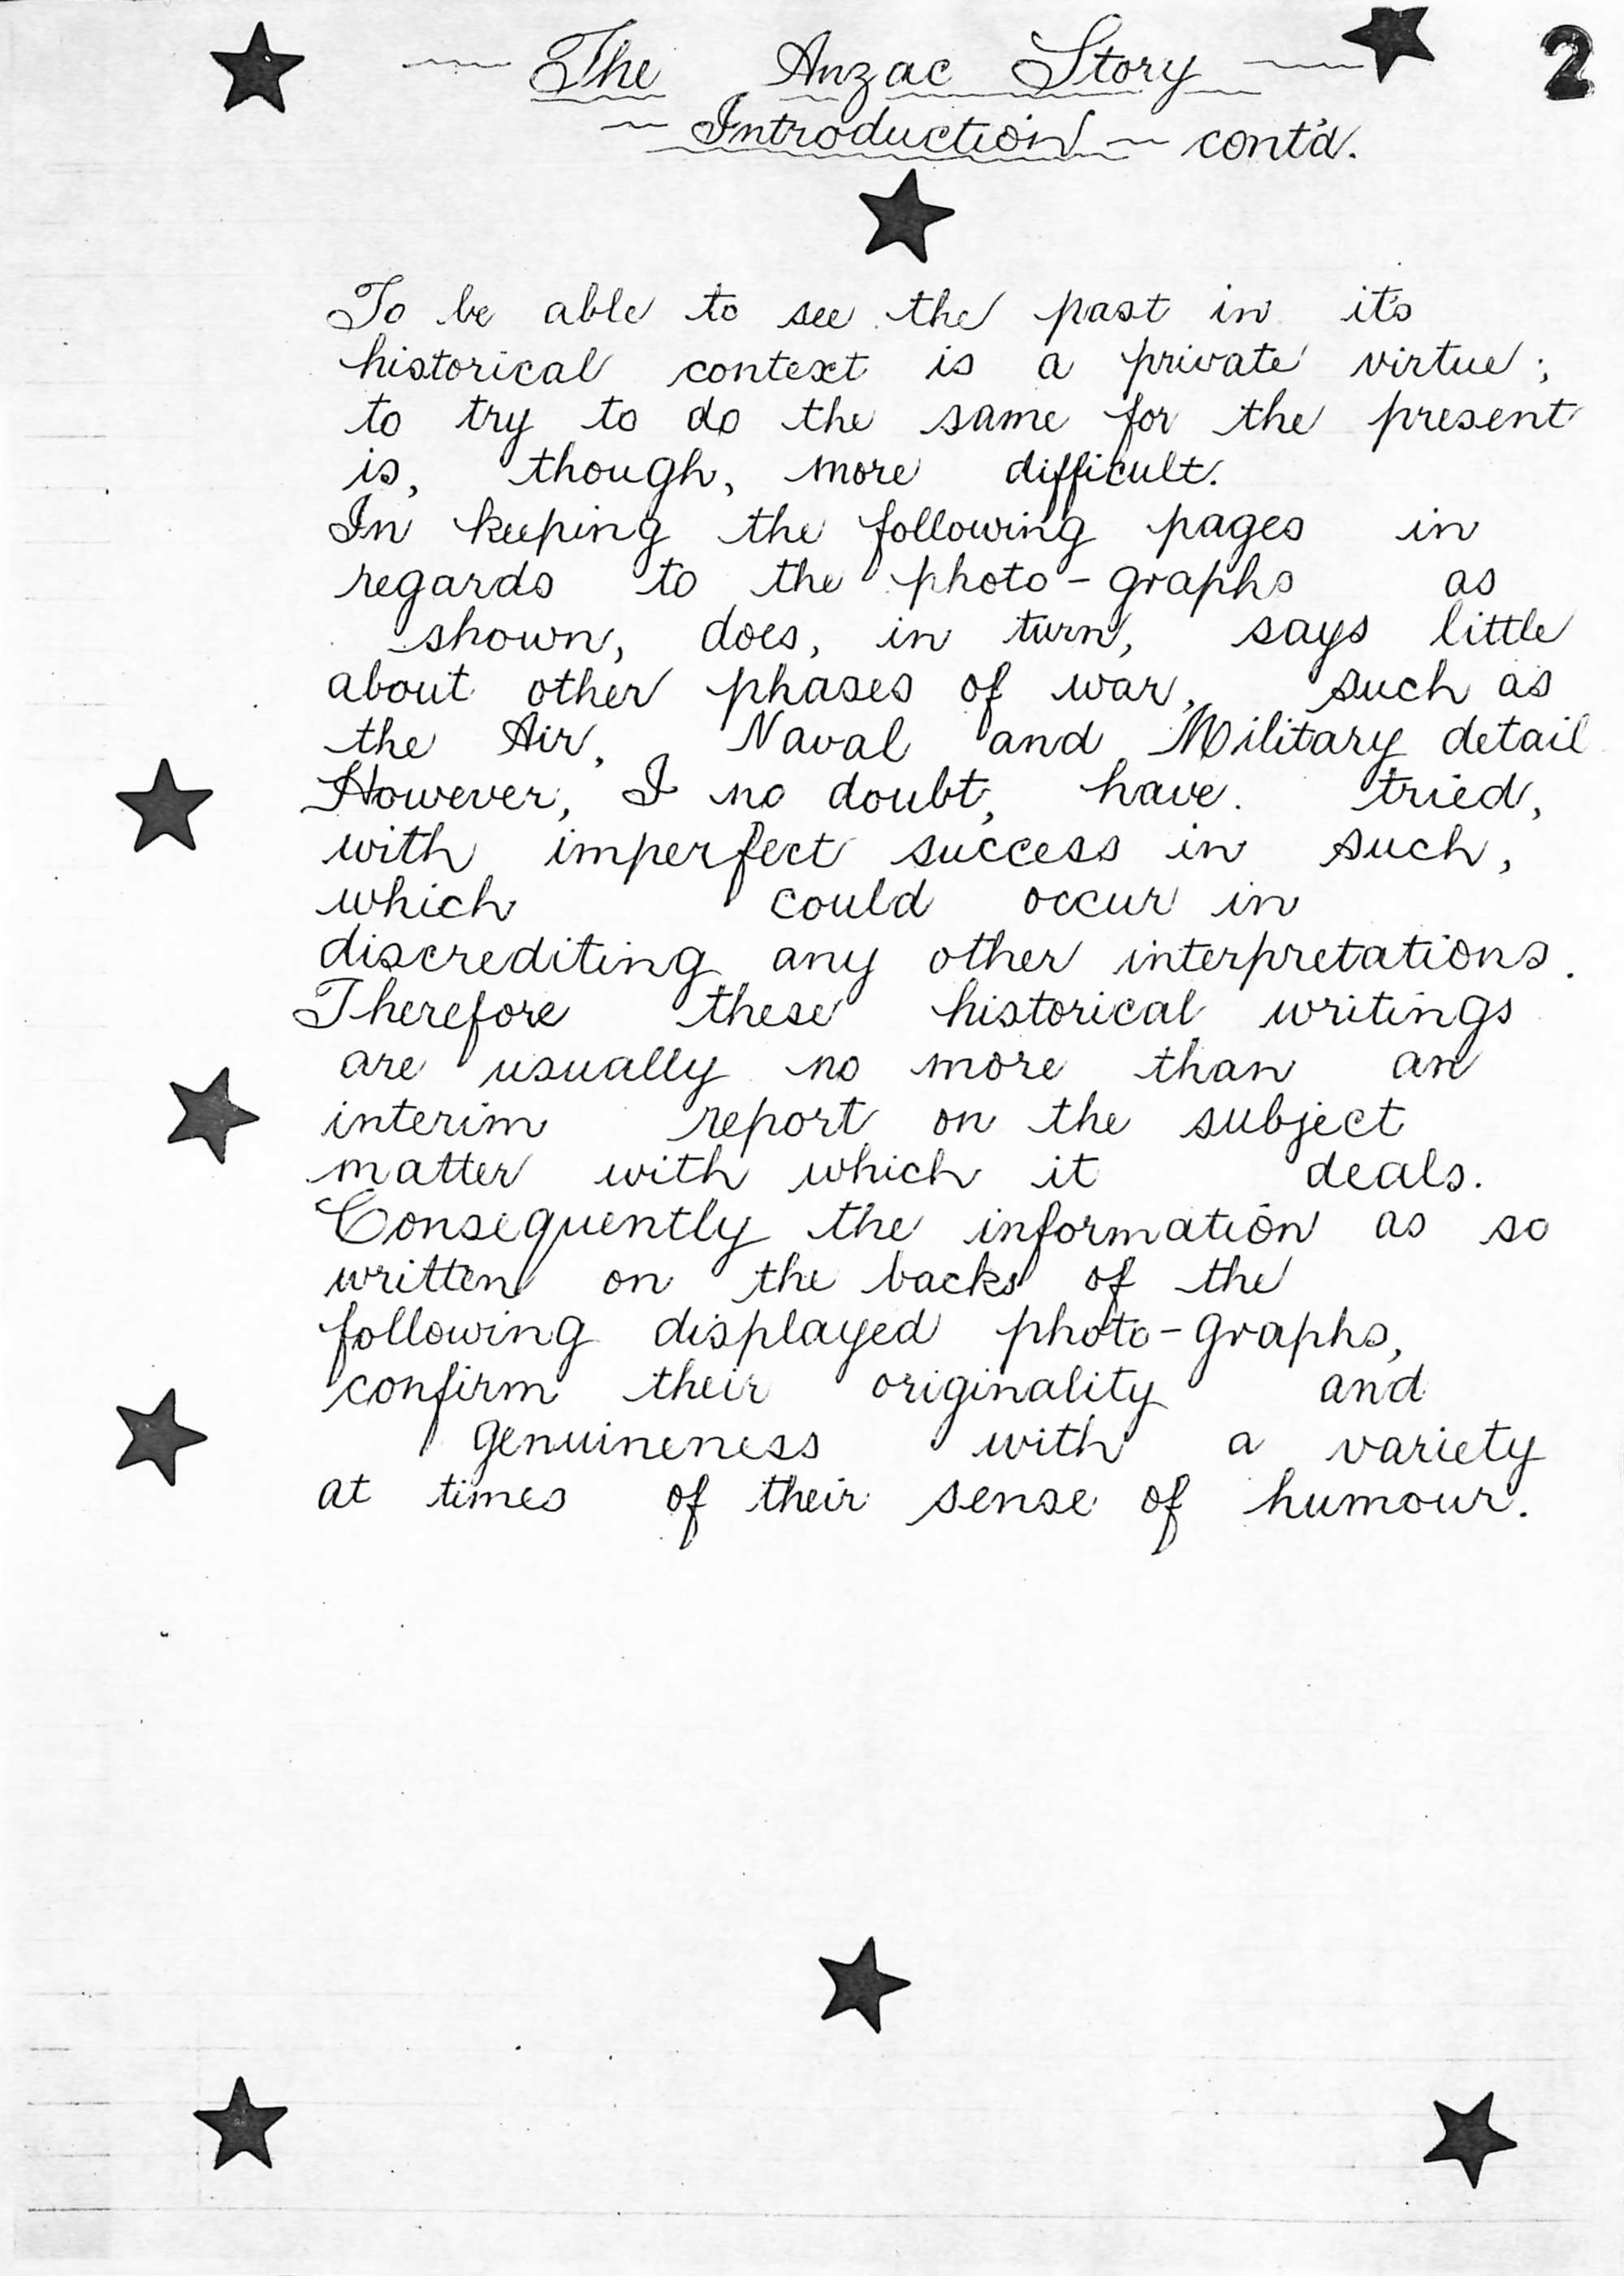 The Anzac Story 2
Introduction cont'd.
To be able to see the past in it's
historical context is a private virtue;
to try to do the same for the present
is, though, more difficult.
In keeping the following pages in
regards to the photo-graphs as
shown, does, in turn, says little
about other phases of war, such as
the Air, Naval and Military detail
However, I no doubt, have. tried,
with imperfect success in such,
which could occur in
discrediting any other interpretations.
Therefore these historical writings
are usually no more than an
interim report on the subject
matter with which it deals.
Consequently the information as so
written on the backs of the
following displayed photo-graphs,
confirm their originality and
genuineness with a variety
at times of their sense of humour.